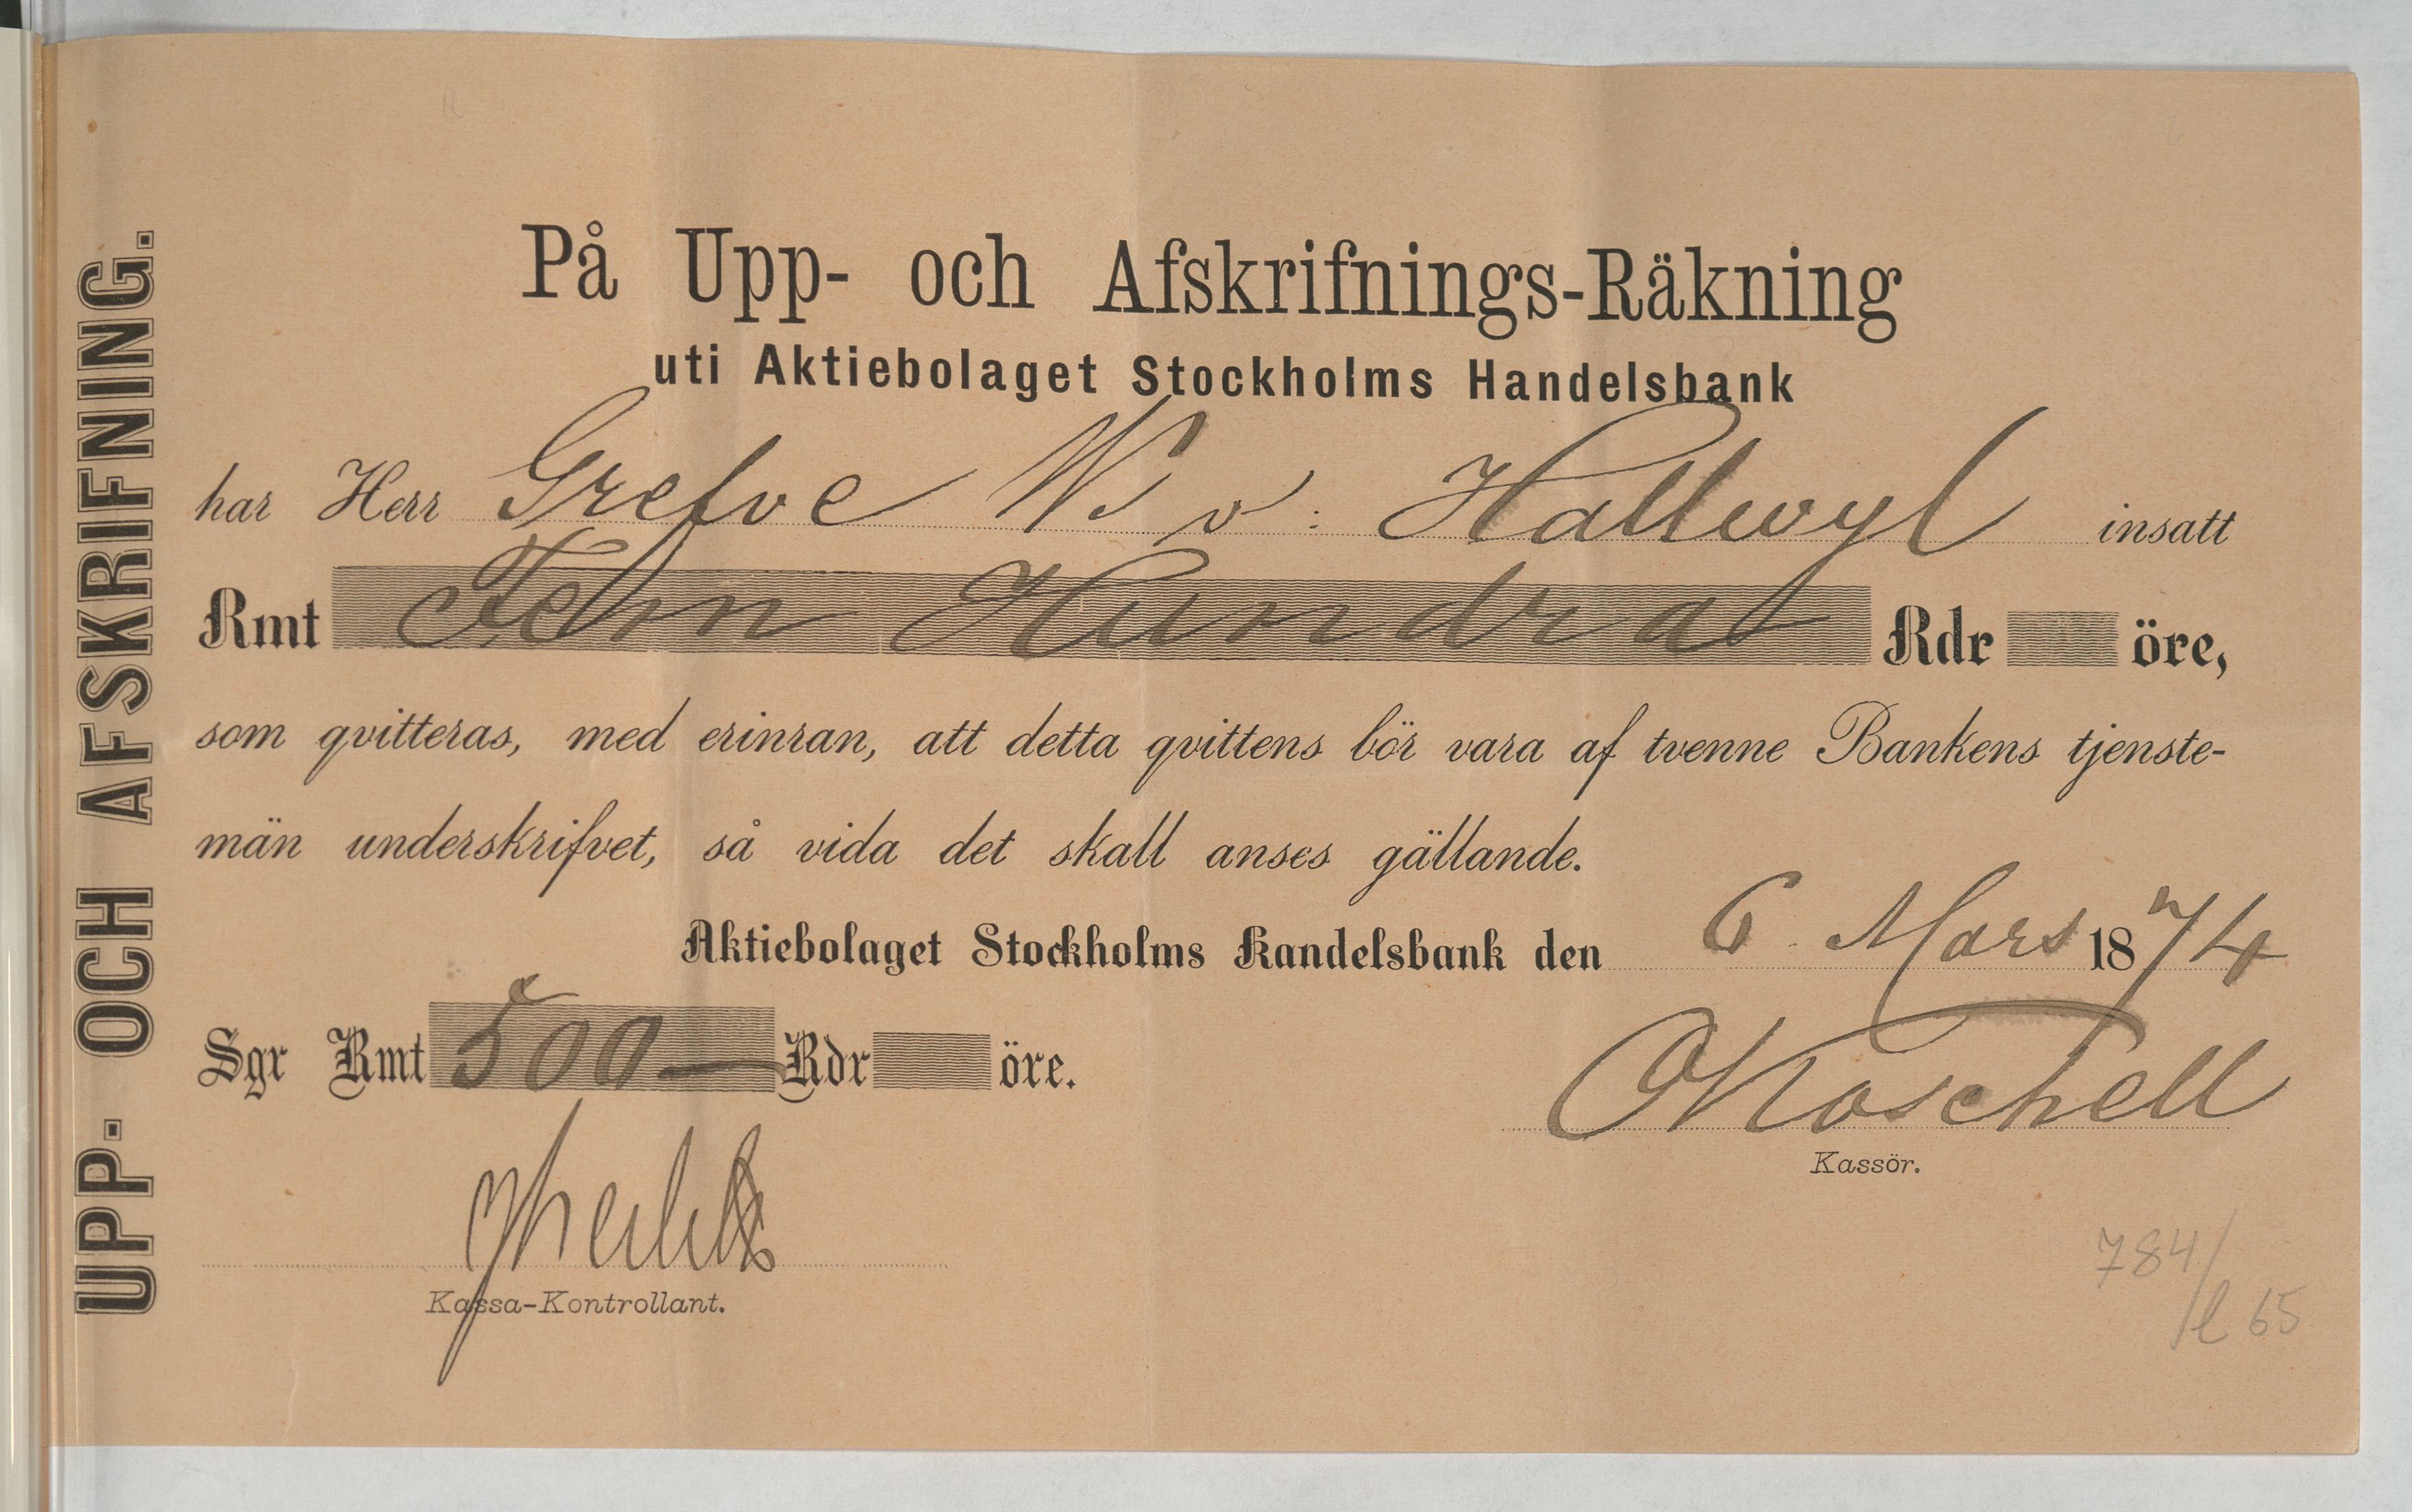 UPP- OCH AFSKRIFNING.
På Upp- och Afskrifnings-Räkning
uti Aktiebolaget Stockholms Handelsbank
har Herr Grefve W v: Hallwyl insatt
Rmt Fem Hundra Rdr öre,
som qvitteras, med erinran, att detta qvittens bör vara af tvenne Bankens tjenste-
män underskrifvet, så vida det skall anses gällande.
Aktiebolaget Stockholms Handelsbank den 6 Mars 1874
Sgr Rmt 500— Rdr öre.
Kassör.
Kassa-Kontrollant.
784/
/l 65